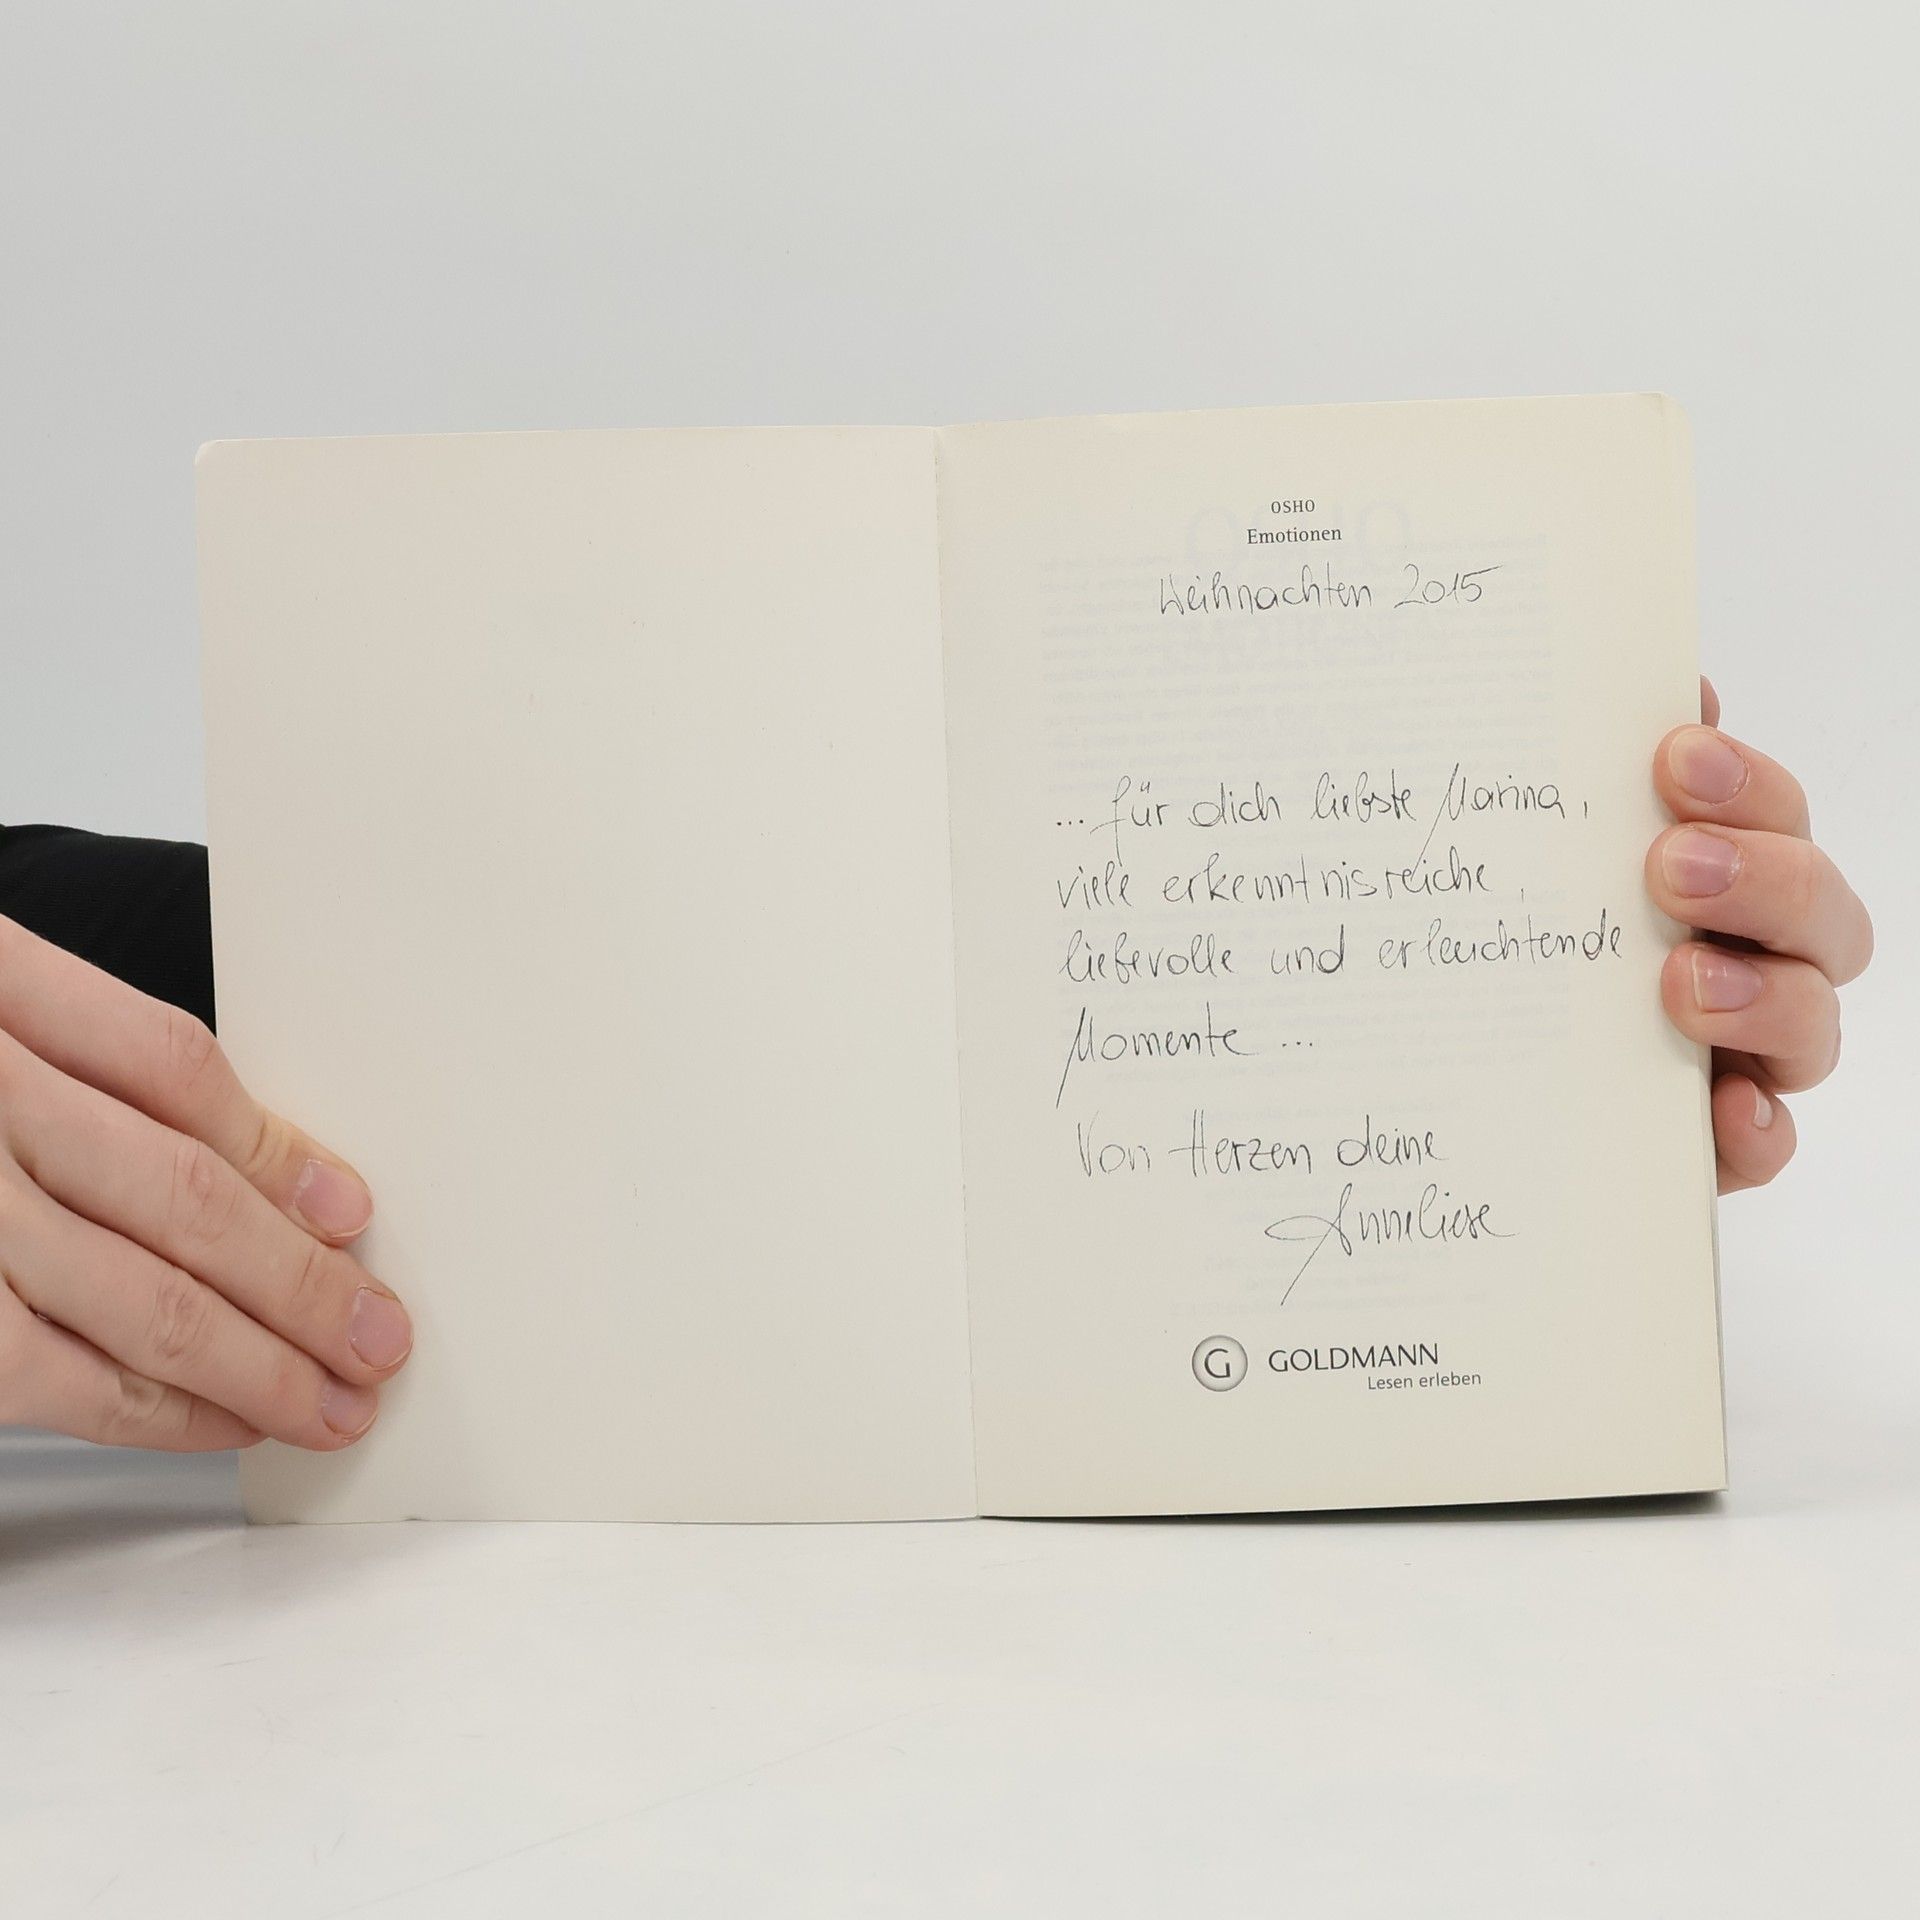 OSHO
Emotionen
Weihnachten 2015
... für dich liebste Marina,
viele erkenntnisreiche,
liebevolle und erleuchtende
Momente ...
Von Herzen deine
Anneliese
G GOLDMANN
Lesen erleben